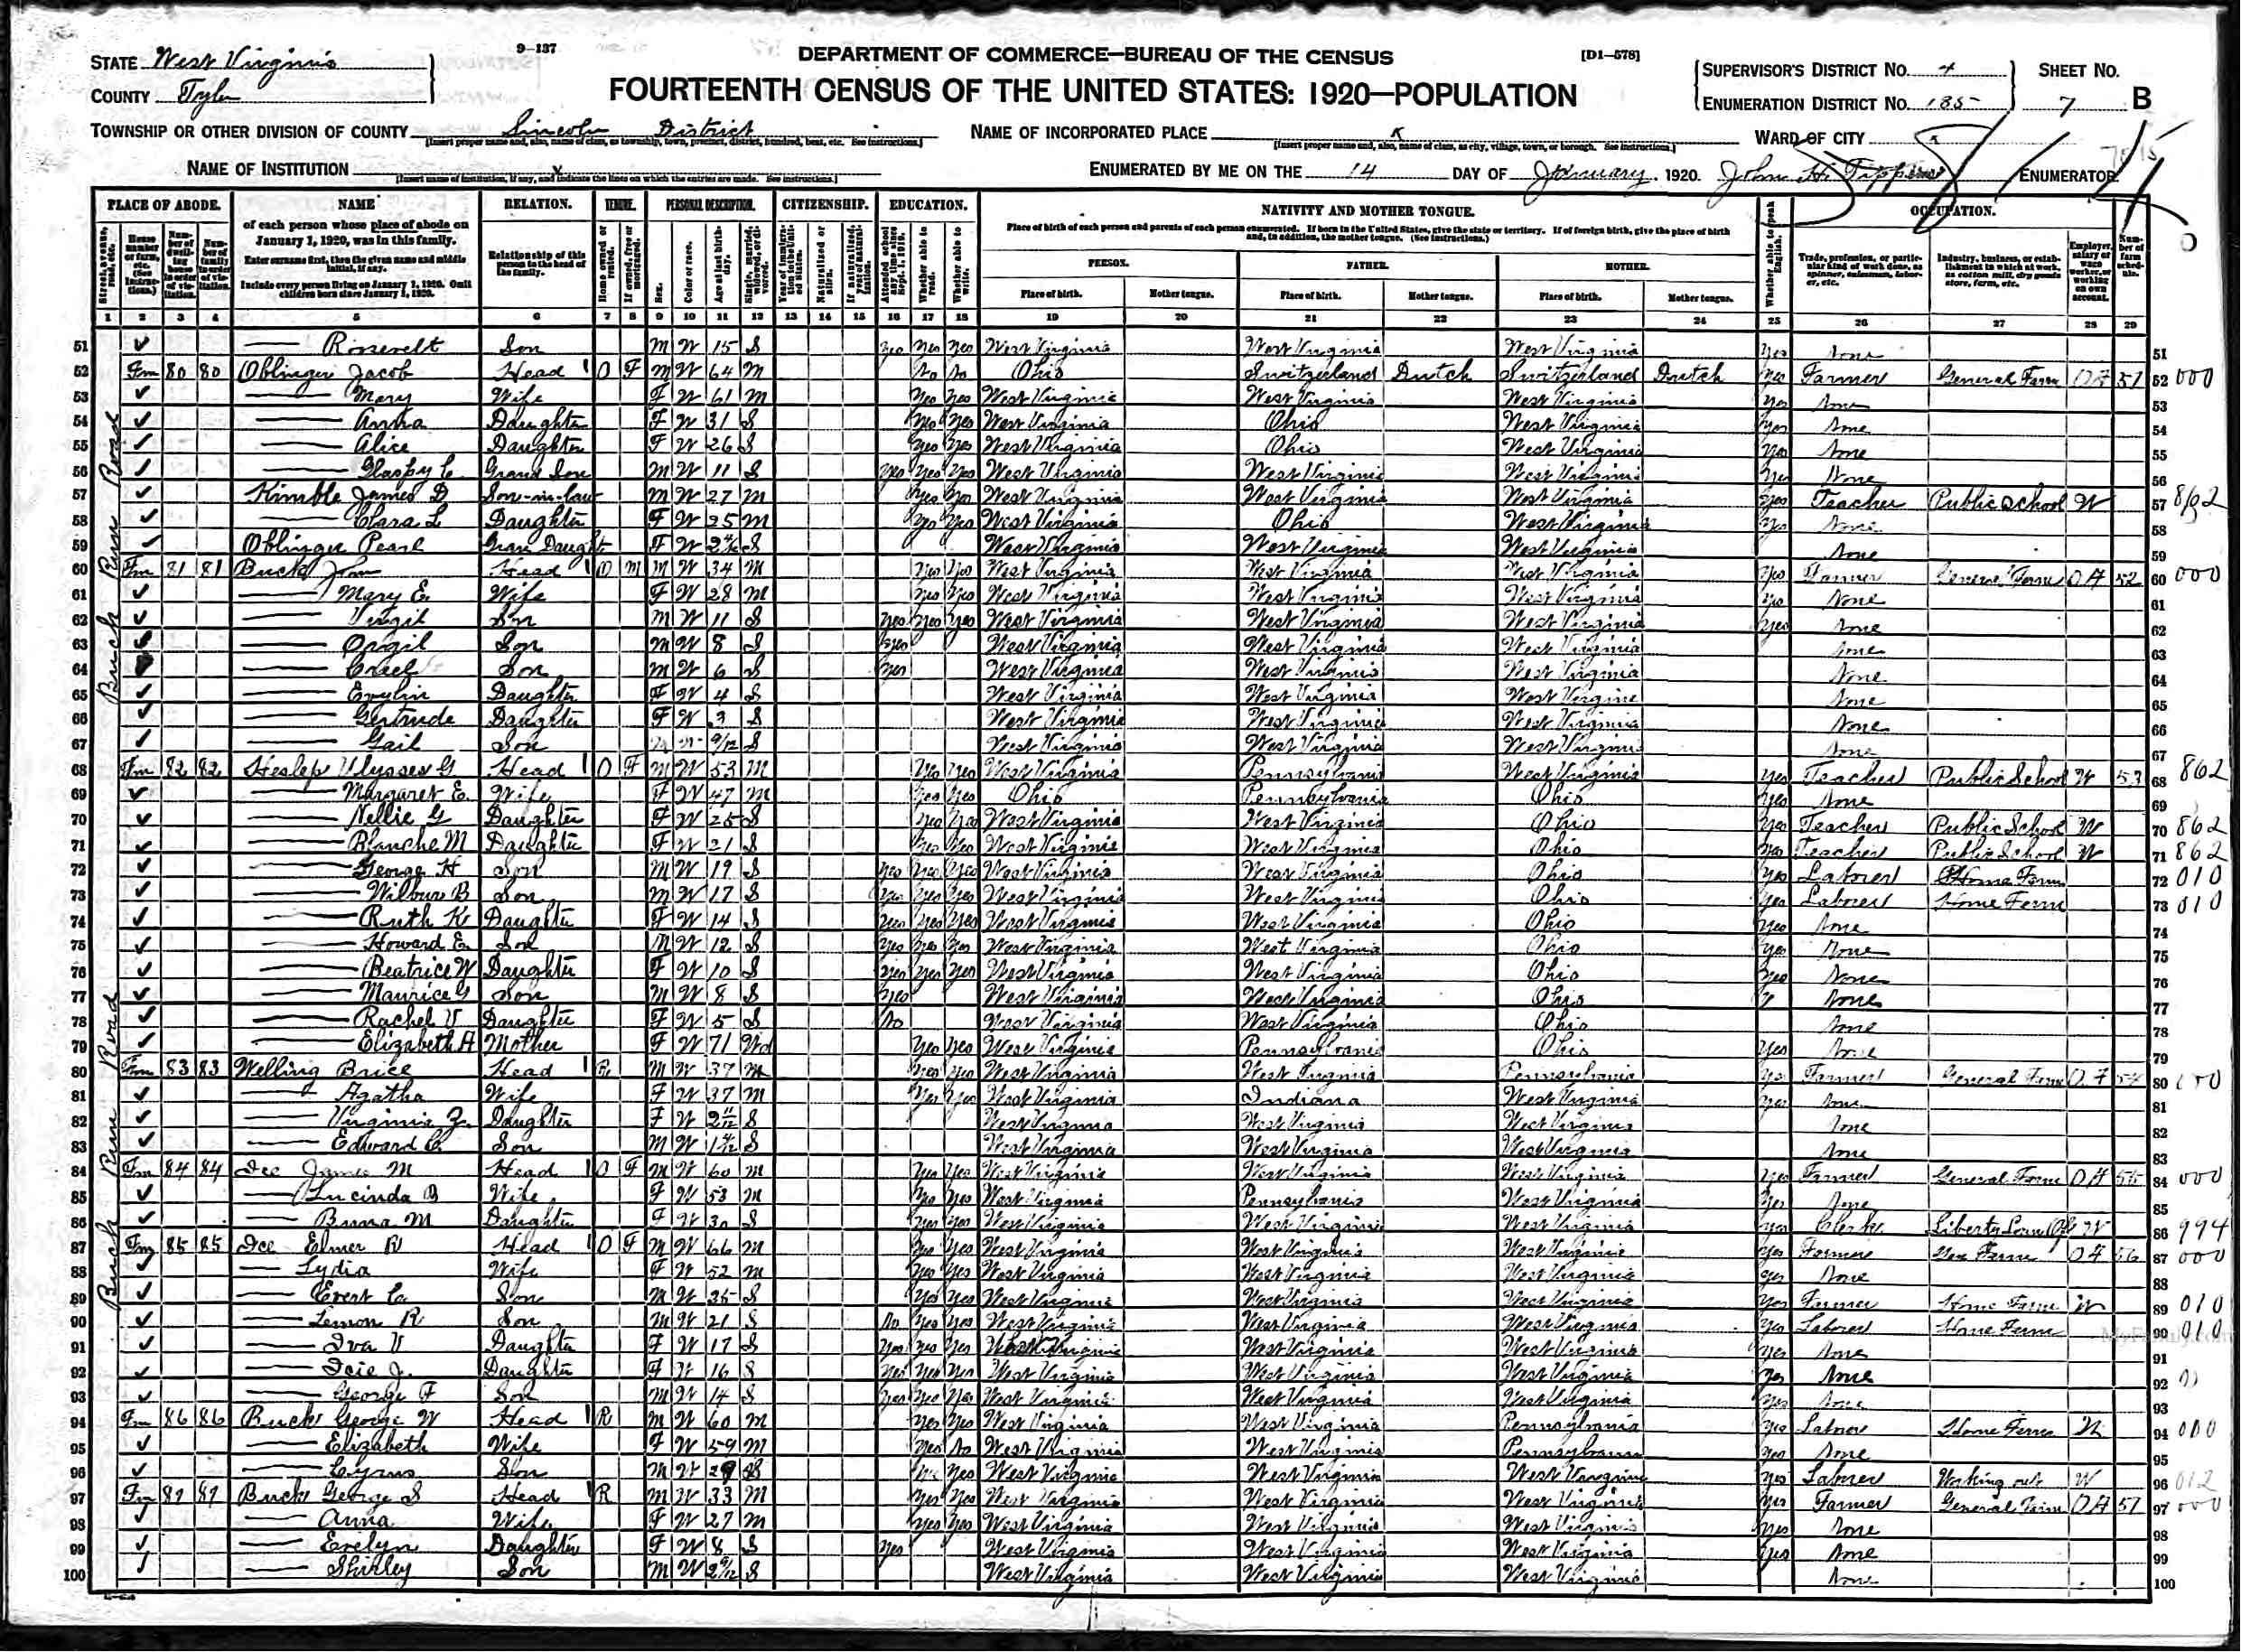 9-137
DEPARTMENT OF COMMERCE—BUREAU OF THE CENSUS
[D1-578]
STATE West Virginia
FOURTEENTH CENSUS OF THE UNITED STATES: 1920—POPULATION
SUPERVISOR'S DISTRICT No. 4 SHEET No.
COUNTY Tyler
ENUMERATION DISTRICT No. 185 7 B
TOWNSHIP OR OTHER DIVISION OF COUNTY Lincoln District NAME OF INCORPORATED PLACE x WARD OF CITY x
[Insert proper name and, also, name of class, as township, town, precinct, district, hundred, beat, etc. See instructions.] [Insert proper name and, also, name of class, as city, village, town, or borough. See instructions.]
NAME OF INSTITUTION x ENUMERATED BY ME ON THE 14 DAY OF January, 1920. John H. ENUMERATOR.
[Insert name of institution, if any, and indicate the lines on which the entries are made. See instructions.]
PLACE OF ABODE. NAME RELATION. TENURE. PERSONAL DESCRIPTION. CITIZENSHIP. EDUCATION. NATIVITY AND MOTHER TONGUE. OCCUPATION.
of each person whose place of abode on January 1, 1920, was in this family.
Enter surname first, then the given name and middle initial, if any.
Include every person living on January 1, 1920. Omit children born since January 1, 1920.
Relationship of this person to the head of the family.
Place of birth of each person and parents of each person enumerated. If born in the United States, give the state or territory. If of foreign birth, give the place of birth and, in addition, the mother tongue. (See instructions.)
PERSON. FATHER. MOTHER.
Place of birth. Mother tongue. Place of birth. Mother tongue. Place of birth. Mother tongue.
1 2 3 4 5 6 7 8 9 10 11 12 13 14 15 16 17 18 19 20 21 22 23 24 25 26 27 28 29
51 Roosevelt Son M W 15 S Yes Yes Yes West Virginia West Virginia West Virginia Yes None 51
52 Fm 80 80 Oblinger Jacob Head O F M W 64 M No No Ohio Switzerland Dutch Switzerland Dutch Yes Farmer General Farm OA 51 52 000
53 Mary Wife F W 61 M Yes Yes West Virginia West Virginia West Virginia Yes None 53
54 Anna Daughter F W 31 S Yes Yes West Virginia Ohio West Virginia Yes None 54
55 Alice Daughter F W 26 S Yes Yes West Virginia Ohio West Virginia Yes None 55
56 Grand Son M W 11 S Yes Yes Yes West Virginia West Virginia West Virginia Yes None 56
57 Kimble James D Son-in-law M W 27 M Yes Yes West Virginia West Virginia West Virginia Yes Teacher Public School W 57 862
58 Clara L Daughter F W 25 M Yes Yes West Virginia Ohio West Virginia Yes None 58
59 Oblinger Pearl Gran Daught F W S West Virginia West Virginia West Virginia None 59
60 Fm 81 81 Buck John Head O M M W 34 M Yes Yes West Virginia West Virginia West Virginia Yes Farmer General Farm OA 52 60 000
61 Mary E. Wife F W 28 M Yes Yes West Virginia West Virginia West Virginia Yes None 61
62 Virgil Son M W 11 S Yes Yes Yes West Virginia West Virginia West Virginia Yes None 62
63 Orgil Son M W 8 S Yes West Virginia West Virginia West Virginia None 63
64 Son M W 6 S Yes West Virginia West Virginia West Virginia None 64
65 Daughter F W 4 S West Virginia West Virginia West Virginia None 65
66 Gertrude Daughter F W 3 S West Virginia West Virginia West Virginia None 66
67 Gail Son 9/12 S West Virginia West Virginia West Virginia None 67
68 Fm 82 82 Heslep Ulysses G. Head O F M W 53 M Yes Yes West Virginia Pennsylvania West Virginia Yes Teacher Public School W 53 68 862
69 Margaret E. Wife F W 47 M Yes Yes Ohio Pennsylvania Ohio Yes None 69
70 Nellie G Daughter F W 25 S Yes Yes West Virginia West Virginia Ohio Yes Teacher Public School W 70 862
71 Blanche M Daughter F W 21 S Yes Yes West Virginia West Virginia Ohio Yes Teacher Public School W 71 862
72 George H Son M W 19 S Yes Yes Yes West Virginia West Virginia Ohio Yes Laborer Home Farm 72 010
73 Wilbur B Son M W 17 S Yes Yes Yes West Virginia West Virginia Ohio Yes Laborer Home Farm 73 010
74 Ruth K Daughter F W 14 S Yes Yes Yes West Virginia West Virginia Ohio Yes None 74
75 Howard E. Son M W 12 S Yes Yes Yes West Virginia West Virginia Ohio Yes None 75
76 Beatrice W Daughter F W 10 S Yes Yes Yes West Virginia West Virginia Ohio Yes None 76
77 Maurice G Son M W 8 S Yes West Virginia West Virginia Ohio None 77
78 Rachel V Daughter F W 5 S No West Virginia West Virginia Ohio None 78
79 Elizabeth A Mother F W 71 Wd Yes Yes West Virginia Pennsylvania Ohio Yes None 79
80 Fm 83 83 Welling Brice Head R M W 37 M Yes Yes West Virginia West Virginia Pennsylvania Yes Farmer General Farm OA 54 80 000
81 Agatha Wife F W 37 M Yes Yes West Virginia Indiana West Virginia Yes None 81
82 Virginia Z. Daughter F W 2 11/12 S West Virginia West Virginia West Virginia None 82
83 Edward C. Son M W S West Virginia West Virginia West Virginia None 83
84 Fm 84 84 Ice James M Head O F M W 60 M Yes Yes West Virginia West Virginia West Virginia Yes Farmer General Farm OA 55 84 000
85 Lucinda B Wife F W 53 M Yes Yes West Virginia Pennsylvania West Virginia Yes None 85
86 M Daughter F W 30 S Yes Yes West Virginia West Virginia West Virginia Yes Clerk Liberty Loan W 86 994
87 Fm 85 85 Ice Elmer R Head O F M W 66 M Yes Yes West Virginia West Virginia West Virginia Yes Farmer Gen Farm OA 56 87 000
88 Lydia Wife F W 52 M Yes Yes West Virginia West Virginia West Virginia Yes None 88
89 Son M W 35 S Yes Yes West Virginia West Virginia West Virginia Yes Farmer Home Farm W 89 010
90 Lemon R Son M W 21 S No Yes Yes West Virginia West Virginia West Virginia Yes Laborer Home Farm 90 010
91 Iva V Daughter F W 17 S Yes Yes Yes West Virginia West Virginia West Virginia Yes None 91
92 Icie J. Daughter F W 16 S Yes Yes Yes West Virginia West Virginia West Virginia Yes None 92
93 George F Son M W 14 S Yes Yes Yes West Virginia West Virginia West Virginia Yes None 93
94 Fm 86 86 Buck George W Head R M W 60 M Yes Yes West Virginia West Virginia Pennsylvania Yes Laborer Home Farm W 94 000
95 Elizabeth Wife F W 59 M Yes No West Virginia West Virginia Pennsylvania Yes None 95
96 Cyrus Son M W 29 S Yes Yes West Virginia West Virginia West Virginia Yes Laborer Working out W 96 012
97 Fm 87 87 Buck George S Head R M W 33 M Yes Yes West Virginia West Virginia West Virginia Yes Farmer General Farm OA 57 97 000
98 Anna Wife F W 27 M Yes Yes West Virginia West Virginia West Virginia Yes None 98
99 Evelyn Daughter F W 8 S Yes West Virginia West Virginia West Virginia Yes None 99
100 Shirley Son M W S West Virginia West Virginia West Virginia None 100